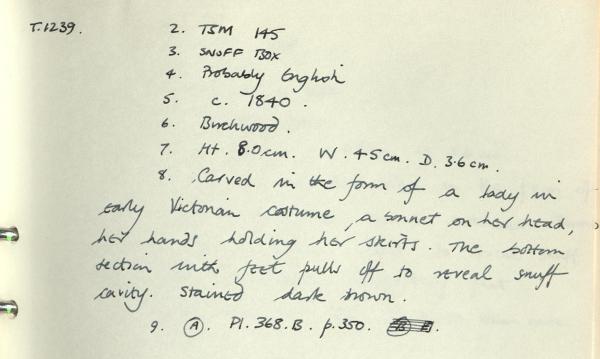 T.1239. 2. TSM 145
3. SNUFF BOX
4. Probably English
5. c. 1840.
6. Birchwood.
7. Ht. 8.0cm. W. 4.5cm. D. 3.6cm.
8. Carved in the form of a lady in
early Victorian costume, a bonnet on her head,
her hands holding her skirts. The bottom
section with feet pulls off to reveal snuff
cavity. Stained dark brown.
9. A. Pl. 368.B. p.350.